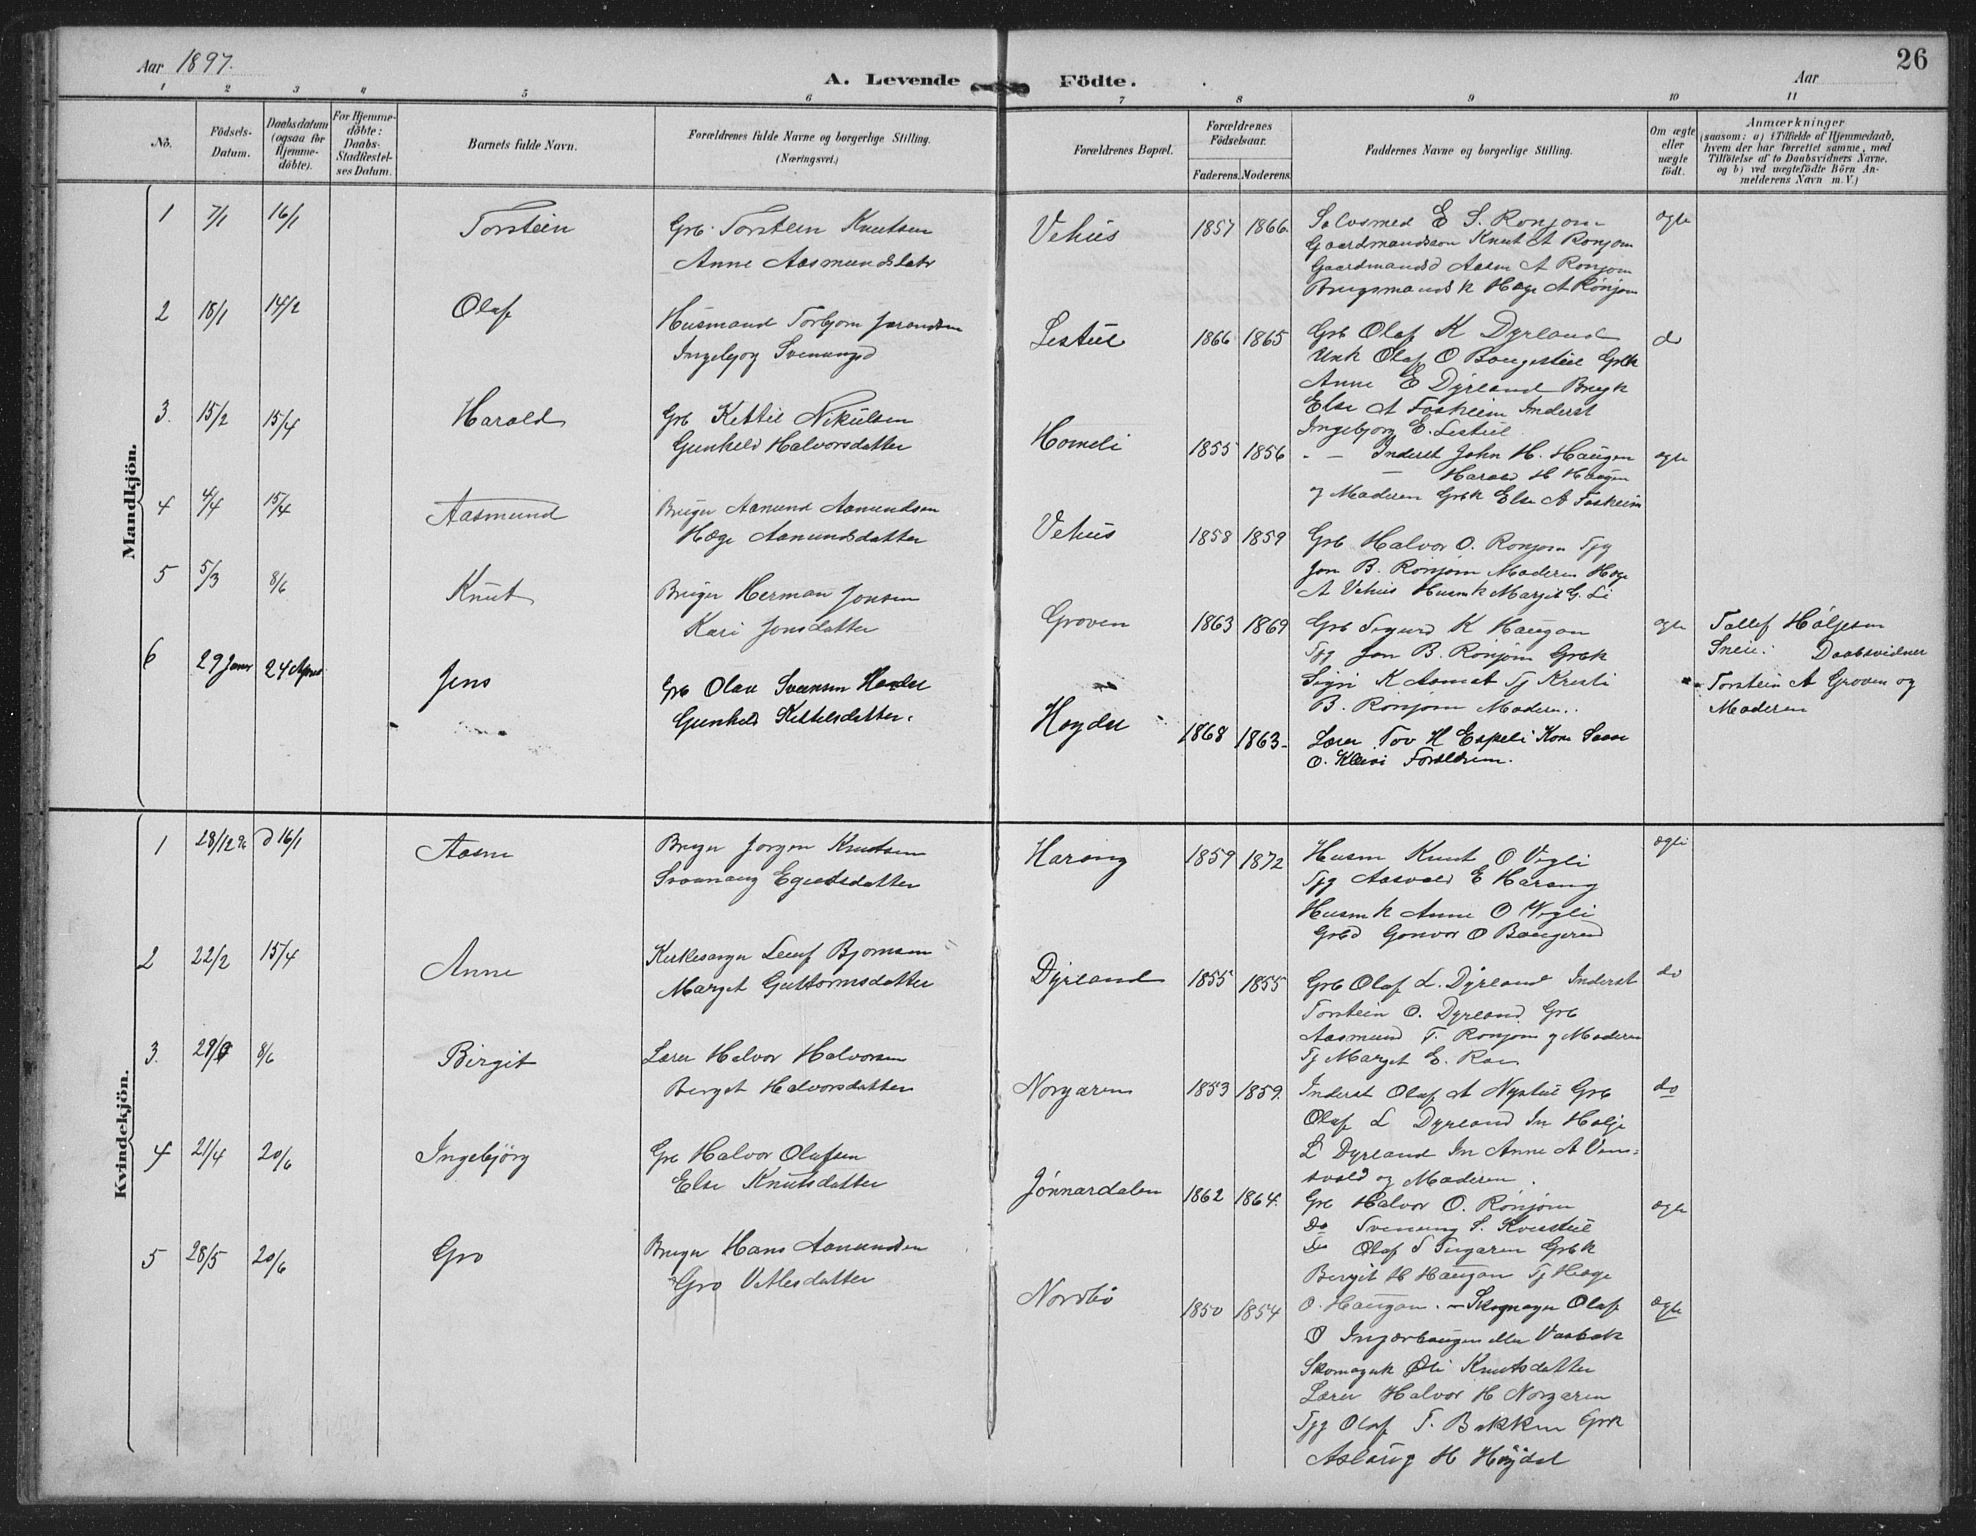 Aar 1897.
A. Levende Födte.
Aar
26
1 2 3 4 5 6 7 8 9 10 11
No.
Födsels-Datum.
Daabsdatum (ogsaa for Hjemmedöbte).
For Hjemmedöbte: Daabs-Stadfæstelses Datum.
Barnets fulde Navn.
Forældrenes fulde Navne og borgerlige Stilling. (Næringsvei.)
Forældrenes Bopæl.
Forældrenes Födselsaar.
Faderens. Moderens.
Faddernes Navne og borgerlige Stilling.
Om ægte eller uægte födt.
Anmærkninger
(saasom: a) i Tilfælde af Hjemmedaab, hvem der har forrettet samme, med Tilföielse af to Daabsvidners Navne, og b) ved uægtefödte Börn Anmelderens Navn m. V.)
Mandkjön.
1 7/1 16/1 Torstein
Grb. Torstein Knutsen
Anne Aasmundsdatr
Vehus 1857 1866.
E S. Ronjom
Gaardmandsson Knut A Ronjom
Gaardmandsd Aasne A Ronjom
Brugsmands k Hæge A Ronjom
ægte
2 18/1 14/2 Olaf
Husmand Torbjorn
Ingebjog Svenungsd
Lestul 1866 1865
Grb Olaf K Dyrland
Unk Olaf O Grbk
Anne E Dyrland Brugk
Else A Foskeim Inderst
Ingebjorg E. Lestul
do
3. 15/2 15/4 Harald
Grb Kettil Nikulsen
Gunhild Halvorsdatter
Homeli 1855 1856
- - Inderst John H. Haugen
- Harald H Haugen
og Moderen Grbk Else A Foskeim
ægte
4 4/4 15/4 Aasmund
Bruger Aanund Aanundsen
Hæge Aanundsdatter
Vehus 1858 1859
Grb Halvor O. Ronjom Tjg
Jon B. Ronjom Moderen Hæge
A Vehus Husmk Margit G. Li
5 5/3 8/6 Knut
Bruger Herman Jonsen
Kari Jonsdatter
Groven 1863 1869
Grb Sigurd K Haugan
Tjg Jon B. Ronjom Grbk
Sigri K Aamot Tj Kresti
B. Ronjom Moderen.
ægte
Tallef Høljesen
Daabsvidner
Torstein A Groven og
Moderen
6 29 Janr 24 April Jens
Grb Olav Svensen
Gunhild Kittelsdatter.
1868 1863.
Lærer Tov H Espeli Kone
O. Forældrene.
Kvindekjön.
1 28/12 96 d 16/1 Aasne
Bruger Jorgen Knutsen
Svanaug
Harang 1859 1872
Husm Knut O Vigli
Tjg Aasvald E Harang
Husm k Anne O Vigli
Grbd Gonvor O
ægte
2 22/2 15/4 Anne
Kirkesanger Leiuf Bjornsen
Marget Guttormsdatter
Dyrland 1855 1855
Grb Olaf L. Dyrland Inderst
Torstein O. Dyrland. Grb
Aasmund T. Ronjom og Moderen
Tj Marget E.
do
3. 8/6 Birgit
Lærer Halvor Halvorsen
Berget Halvorsdatter
Norgaren 1853 1859.
Inderst Olaf A Nystul Grb
Olaf L Dyrland In Holje
L Dyrland In Anne A
og Moderen.
do
4 21/4 20/6 Ingebjörg
Grb Halvor Olafsen
Else Knutsdatter
Jønnardalen 1862 1864.
Grb Halvor O. Ronjom
Do Svenung S.
Do Olaf Grbk
Bergit H Haugan Tj Hæge
O. Haugan.
ægte
5 28/5 20/6 Gro
Bruger Hans Aanundsen
Gro Vetlesdatter
Nordbø 1850 1854
Skomager Olaf
O eller Vaabak
Skomagerk Knutsdatter
Lærer Halvor H Norgaren
Tjg Olaf T. Bakken Grbk
Aslaug H Höydal
ægte